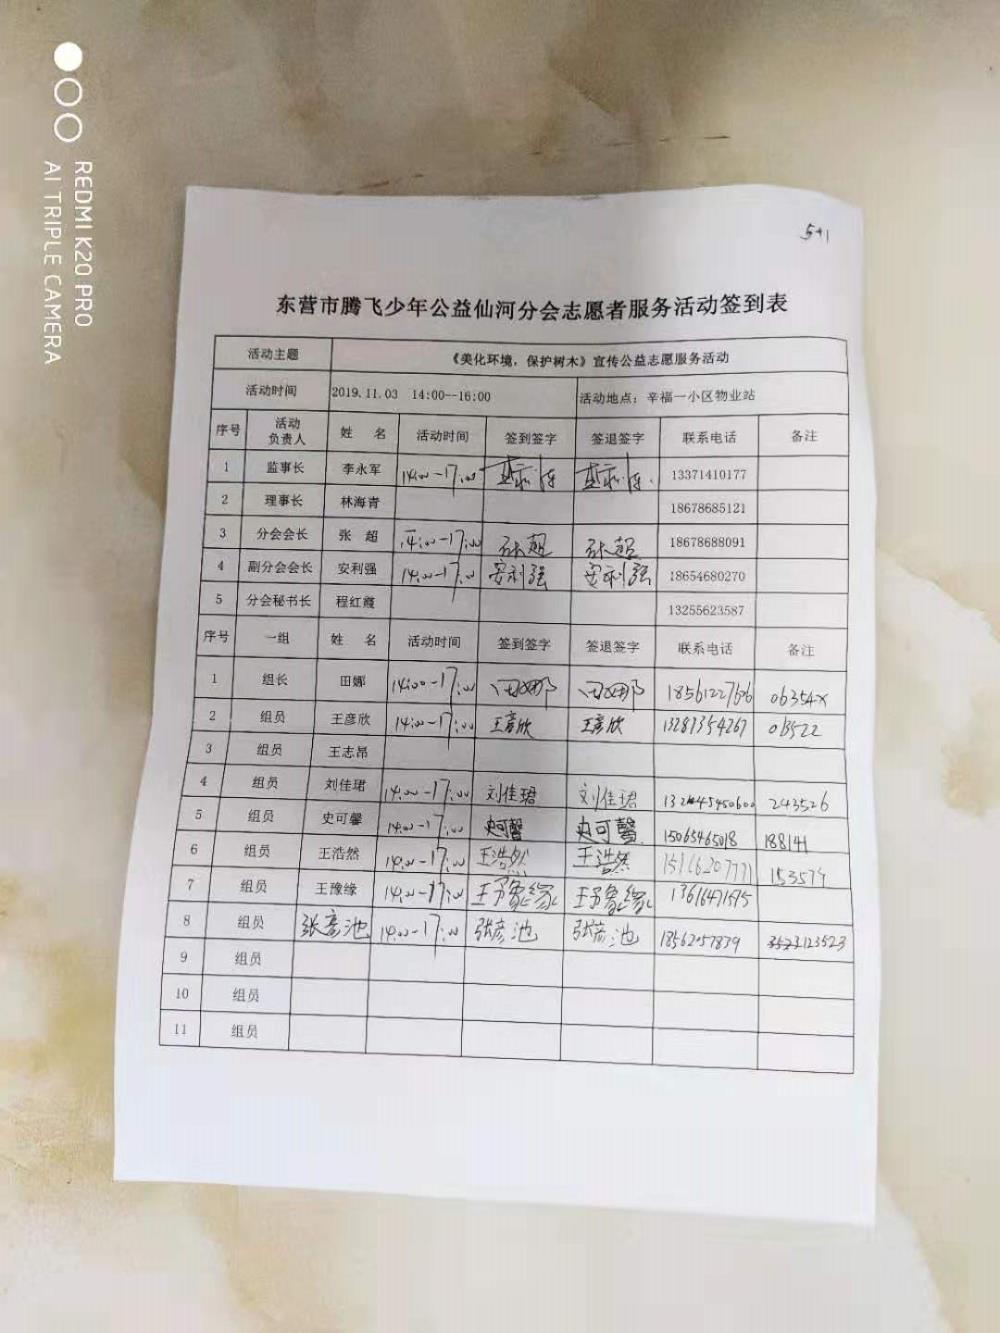 REDMI K20 PRO
AI TRIPLE CAMERA
5+1
东营市腾飞少年公益仙河分会志愿者服务活动签到表
活动主题 《美化环境，保护树木》宣传公益志愿服务活动
活动时间 2019.11.03 14:00--16:00 活动地点：辛福一小区物业站
序号 活动负责人 姓 名 活动时间 签到签字 签退签字 联系电话 备注
1 监事长 李永军 14:00-17:00 13371410177
2 理事长 林海青 18678685121
3 分会会长 张 超 14:00-17:00 张超 张超 18678688091
4 副分会会长 安利强 14:00-17:00 安利强 安利强 18654680270
5 分会秘书长 程红霞 13255623587
序号 一组 姓 名 活动时间 签到签字 签退签字 联系电话 备注
1 组长 田娜 14:00-17:00 田娜 田娜 18561227606 06354X
2 组员 王彦欣 14:00-17:00 王彦欣 王彦欣 13287354267 013522
3 组员 王志昂
4 组员 刘佳珺 14:00-17:00 刘佳珺 刘佳珺 243526
5 组员 史可馨 14:00-17:00 史可馨 史可馨 15065465018 188141
6 组员 王浩然 14:00-17:00 王浩然 王浩然 15166207771 153579
7 组员 王豫缘 14:00-17:00 王豫缘 王豫缘 13616471595
8 组员 张彦池 14:00-17:00 张彦池 张彦池 18562057879
9 组员
10 组员
11 组员